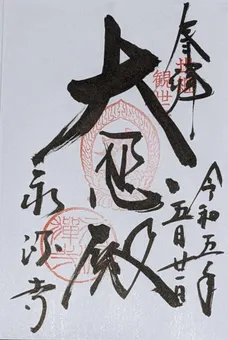 奉拝
令和五年
五月廿一日
大悲殿
永源寺